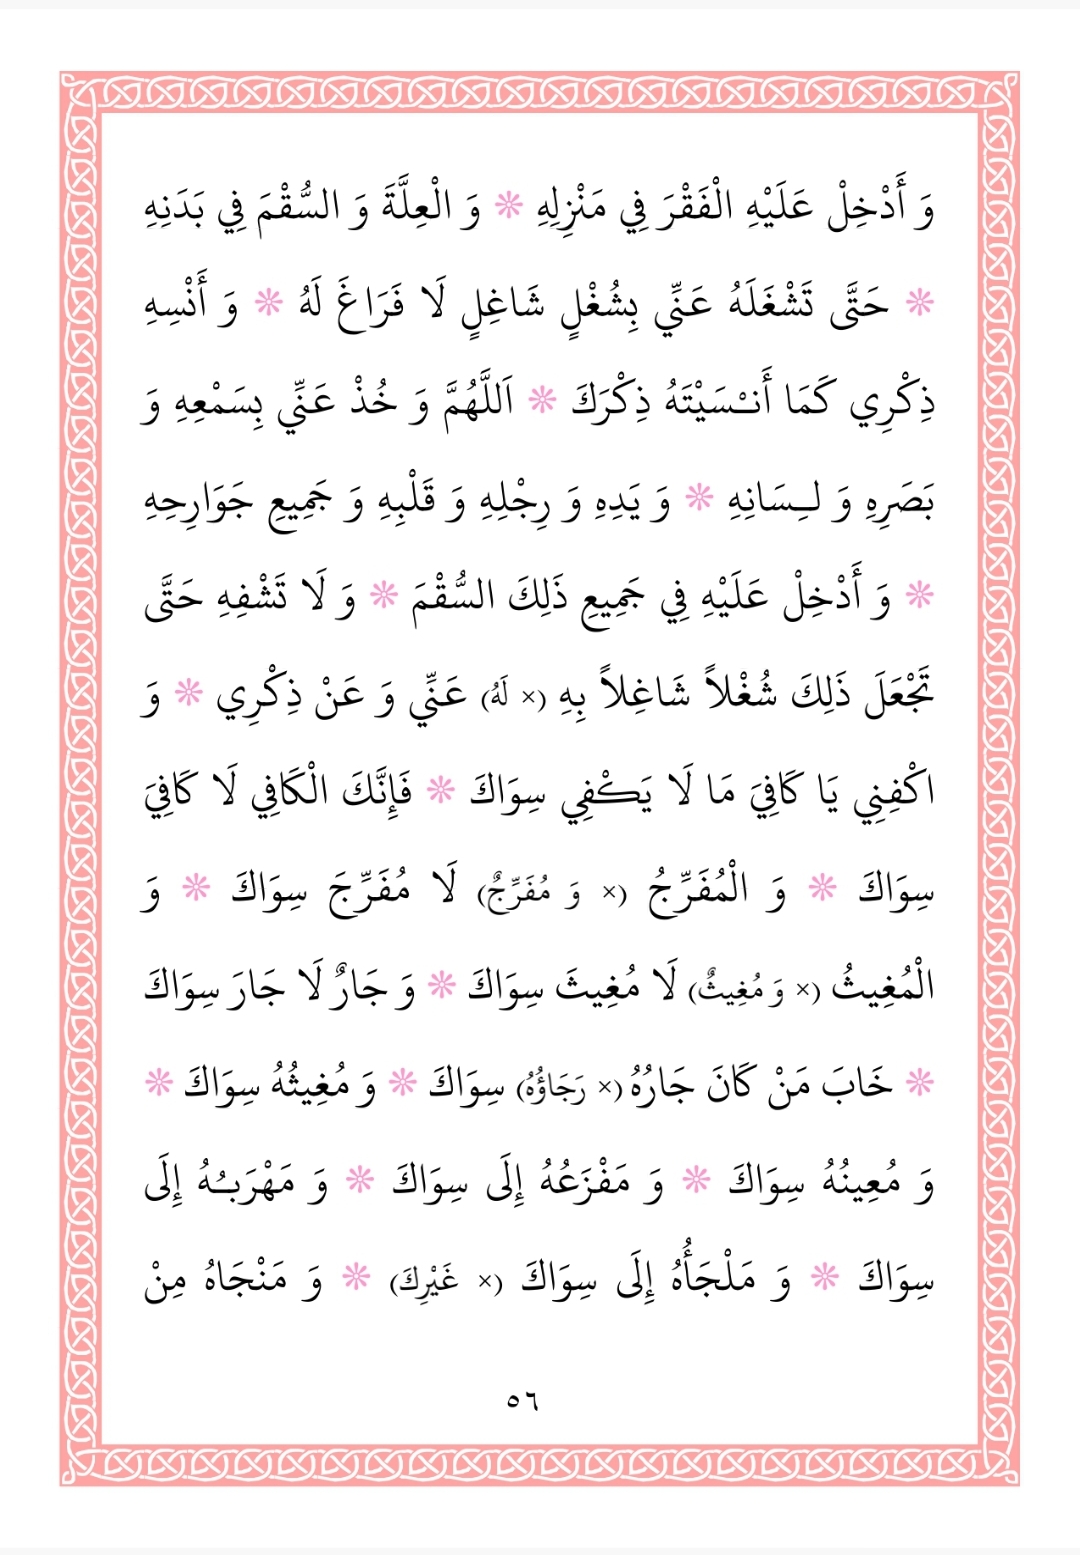 وَ أَدْخِلْ عَلَيْهِ الْفَقْرَ فِي مَنْزِلِهِ ❊ وَ الْعِلَّةَ وَ السُّقْمَ فِي بَدَنِهِ
❊ حَتَّى تَشْغَلَهُ عَنِّي بِشُغْلٍ شَاغِلٍ لَا فَرَاغَ لَهُ ❊ وَ أَنْسِهِ
ذِكْرِي كَمَا أَنْسَيْتَهُ ذِكْرَكَ ❊ اَللَّهُمَّ وَ خُذْ عَنِّي بِسَمْعِهِ وَ
بَصَرِهِ وَ لِسَانِهِ ❊ وَ يَدِهِ وَ رِجْلِهِ وَ قَلْبِهِ وَ جَمِيعِ جَوَارِحِهِ
❊ وَ أَدْخِلْ عَلَيْهِ فِي جَمِيعِ ذَلِكَ السُّقْمَ ❊ وَ لَا تَشْفِهِ حَتَّى
تَجْعَلَ ذَلِكَ شُغْلاً شَاغِلاً بِهِ (× لَهُ) عَنِّي وَ عَنْ ذِكْرِي ❊ وَ
اكْفِنِي يَا كَافِيَ مَا لَا يَكْفِي سِوَاكَ ❊ فَإِنَّكَ الْكَافِي لَا كَافِيَ
سِوَاكَ ❊ وَ الْمُفَرِّجُ (× وَ مُفَرِّجٌ) لَا مُفَرِّجَ سِوَاكَ ❊ وَ
الْمُغِيثُ (× وَ مُغِيثٌ) لَا مُغِيثَ سِوَاكَ ❊ وَ جَارٌ لَا جَارَ سِوَاكَ
❊ خَابَ مَنْ كَانَ جَارُهُ (× رَجَاؤُهُ) سِوَاكَ ❊ وَ مُغِيثُهُ سِوَاكَ ❊
وَ مُعِينُهُ سِوَاكَ ❊ وَ مَفْزَعُهُ إِلَى سِوَاكَ ❊ وَ مَهْرَبُهُ إِلَى
سِوَاكَ ❊ وَ مَلْجَأُهُ إِلَى سِوَاكَ (× غَيْرِكَ) ❊ وَ مَنْجَاهُ مِنْ
٥٦